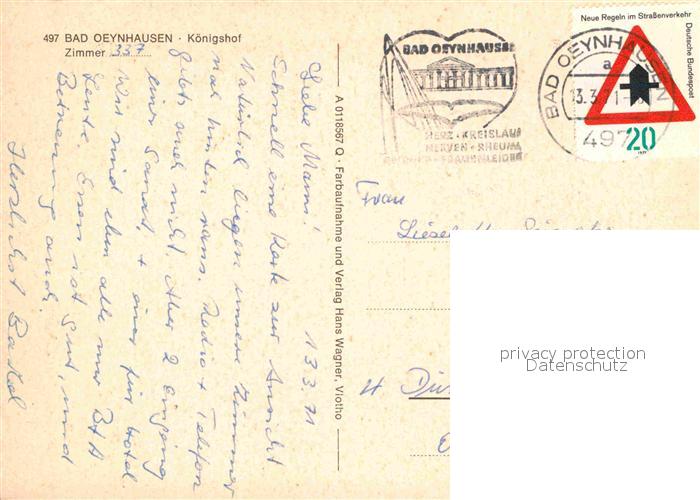 497 BAD OEYNHAUSEN · Königshof
Zimmer 337
Liebe Mami! 13.3.71
Schnell eine Karte zur Ansicht
Natürlich liegen unsere Zimmer
nach hinten raus. Radio + Telefon
gibts auch nicht. Aber 2 Eingänge
einer Sanat. + einer für Hotel.
Wir sind eben alle nur B+A
Leute. Essen ist gut, und
Betreuung auch.
Herzlichst
A 0118567 Q · Farbaufnahme und Verlag Hans Wagner, Vlotho
BAD OEYNHAUSEN
HERZ · KREISLAUF
NERVEN · RHEUMA
FRAUENLEIDEN
BAD OEYNHAUSEN 2
a
13.3.71
497
Neue Regeln im Straßenverkehr
Deutsche Bundespost
20
1971
Frau
privacy protection
Datenschutz